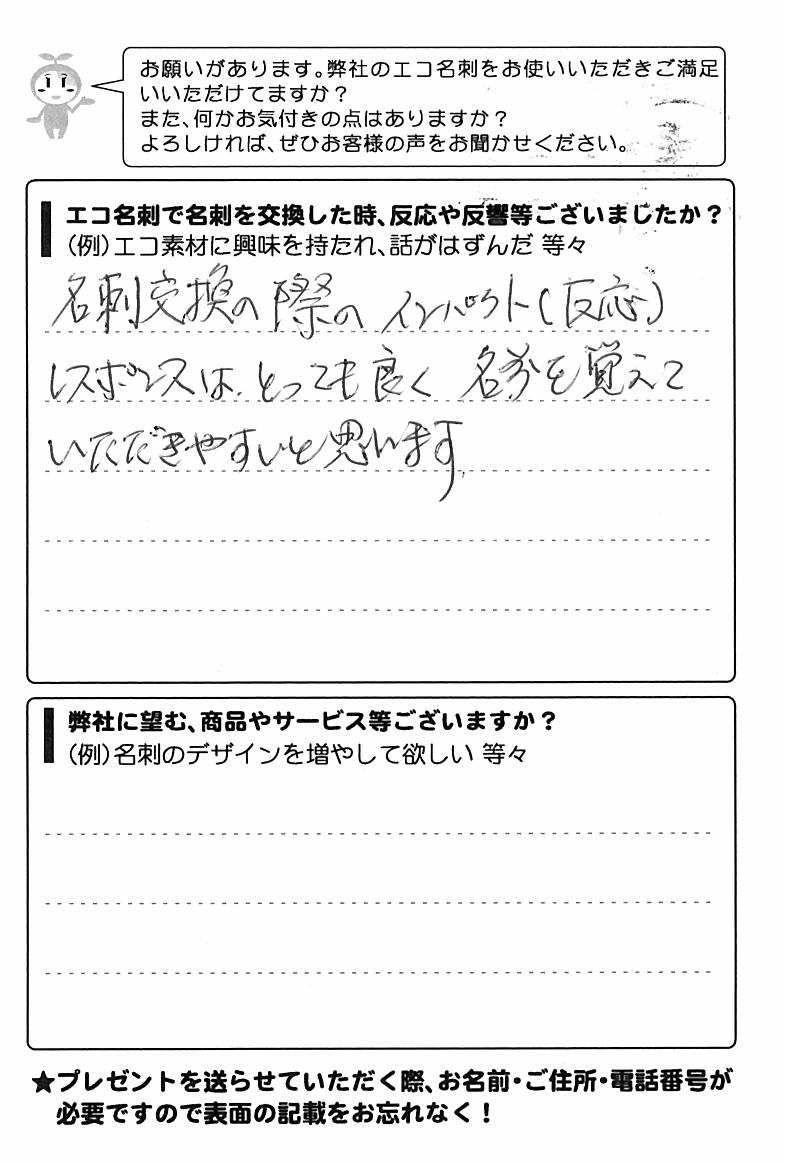 お願いがあります。弊社のエコ名刺をお使いいただきご満足
いいただけてますか？
また、何かお気付きの点はありますか？
よろしければ、ぜひお客様の声をお聞かせください。
エコ名刺で名刺を交換した時、反応や反響等ございましたか？
（例）エコ素材に興味を持たれ、話がはずんだ 等々
名刺交換の際のインパクト（反応）
レスポンスは、とっても良く 名前を覚えて
いただきやすいと思います。
弊社に望む、商品やサービス等ございますか？
（例）名刺のデザインを増やして欲しい 等々
★プレゼントを送らせていただく際、お名前・ご住所・電話番号が
必要ですので表面の記載をお忘れなく！